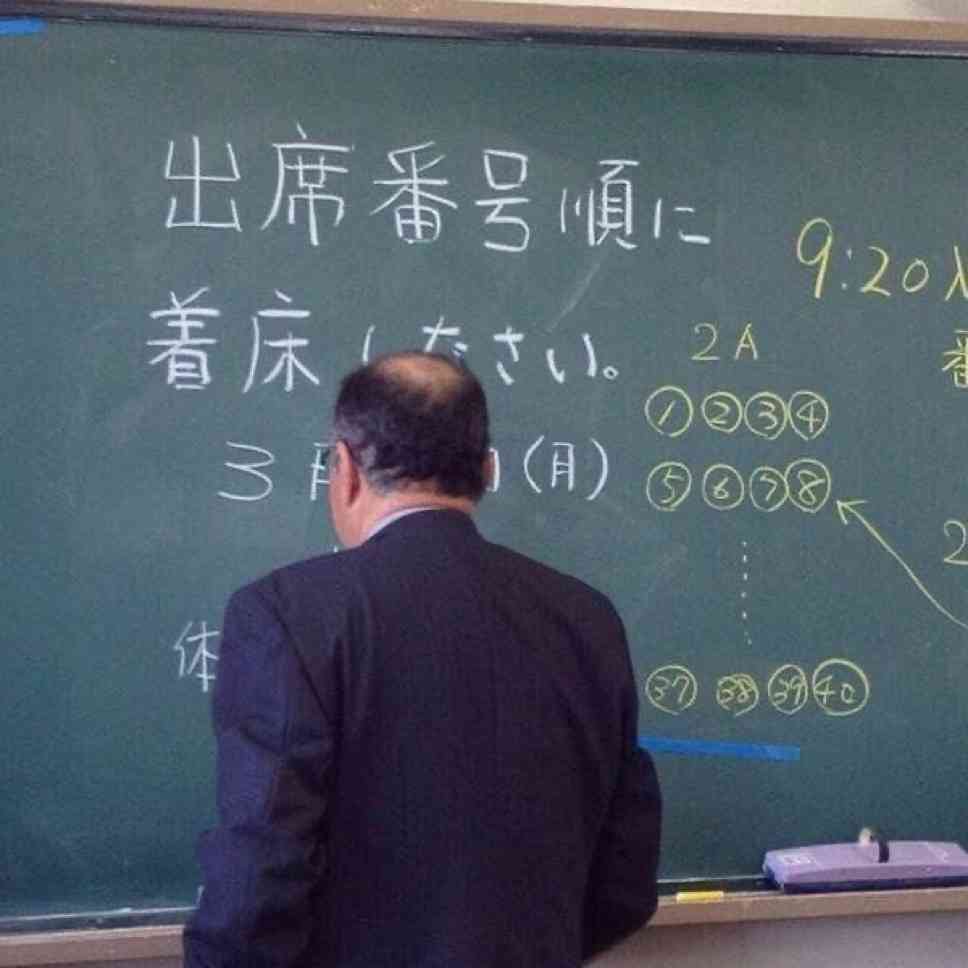 出席番号順に
着床ください。
3月 (月)
体
9:20
番
2A
① ② ③ ④
⑤ ⑥ ⑦ ⑧
㊲ ㊳ ㊴ ㊵
2